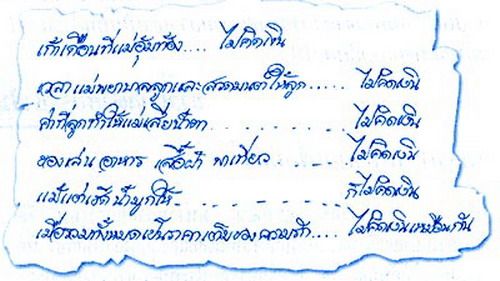 เก้าเดือนที่แม่อุ้มท้อง.... ไม่คิดเงิน
เวลาแม่พยาบาลลูกและสวดมนต์ให้ลูก...... ไม่คิดเงิน
ค่าที่ลูกทำให้แม่เสียน้ำตา. . . . . . . . . . ไม่คิดเงิน
ของเล่น อาหาร เสื้อผ้า พาเที่ยว........... ไม่คิดเงิน
แม้แต่เช็ดน้ำมูกให้. . . . . . . . . ก็ไม่คิดเงิน
เมื่อรวมทั้งหมดเป็นราคาเต็มของความรัก..... ไม่คิดเงินเหมือนกัน